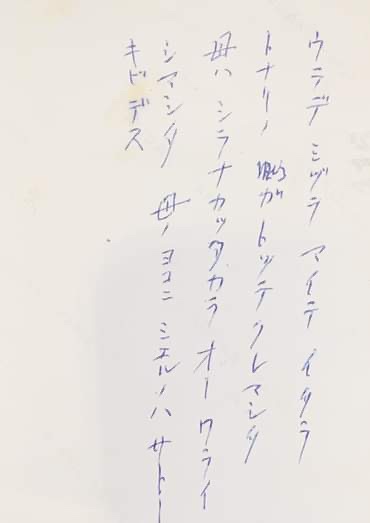 ウラデ ミヅヲ マイテ イタラ
トナリノ 鵰ガ トッテクレマシタ
母ハ シラナカッタカラ オーワライ
シマシタ 母ノヨコニ ミエルノハ サトー
キビデス